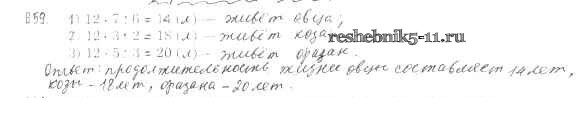 859. 1) 12 · 7 : 6 = 14 (л) – живёт овца;
2) 12 · 3 : 2 = 18 (л) – живёт коза
reshebnik5-11.ru
3) 12 · 5 : 3 = 20 (л) – живёт фазан.
Ответ: продолжительность жизни овцы составляет 14 лет,
козы – 18 лет, фазана – 20 лет.